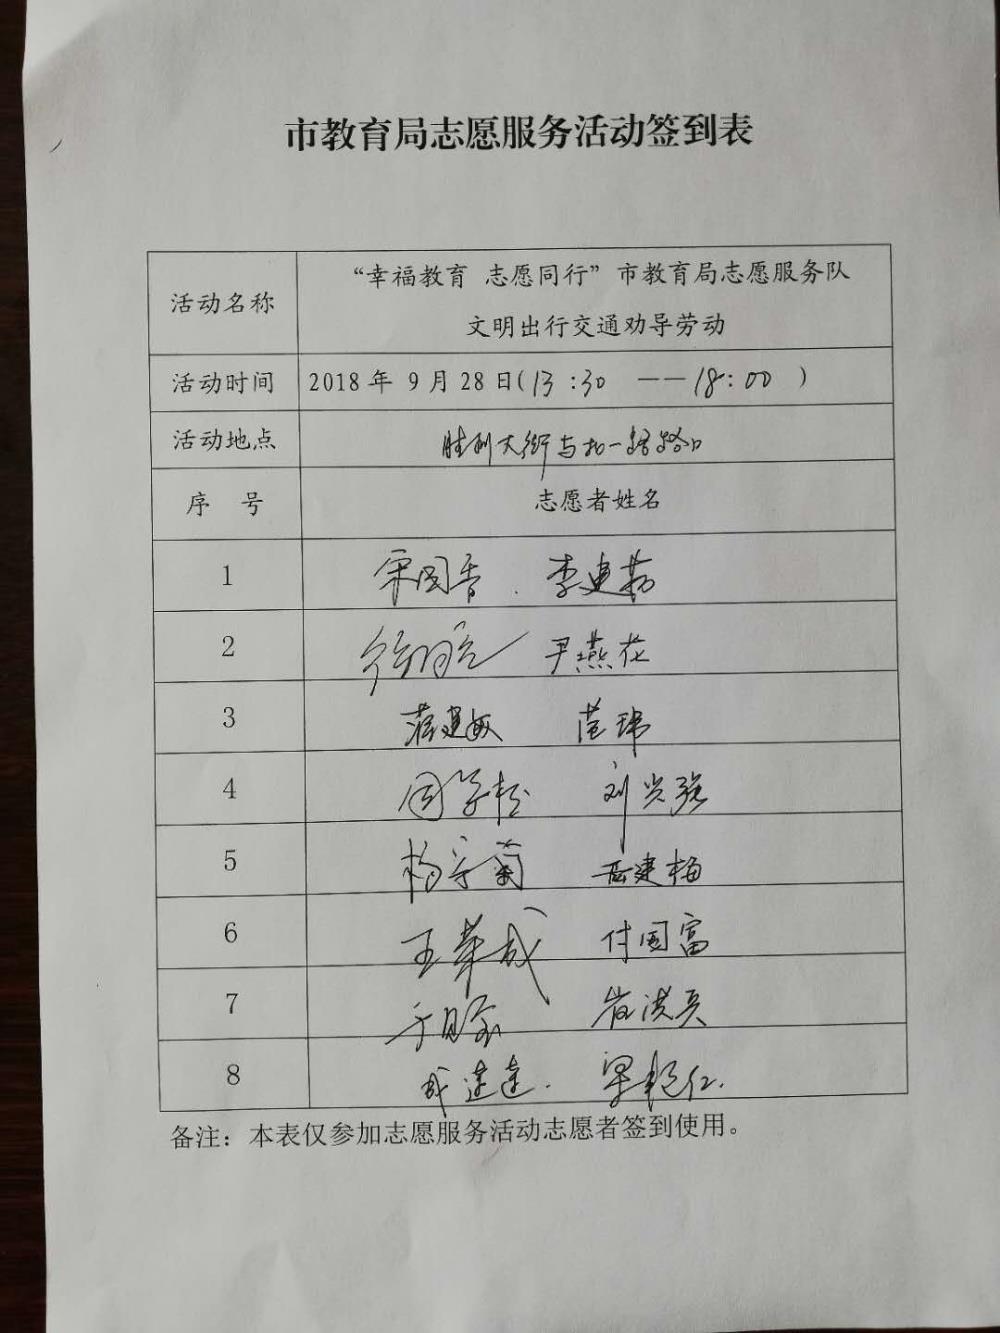 市教育局志愿服务活动签到表
活动名称 “幸福教育 志愿同行”市教育局志愿服务队
文明出行交通劝导劳动
活动时间 2018年 9月28日(13:30 ——18:00 )
活动地点 胜利大街与北一路路口
序 号 志愿者姓名
1 宋国香 李建
2 尹燕花
3 蒋建敏 范玮
4 周学松 刘光强
5 杨守菊 岳建梅
6 王华成 付国富
7 崔洪兵
8 成连连 梁
备注：本表仅参加志愿服务活动志愿者签到使用。